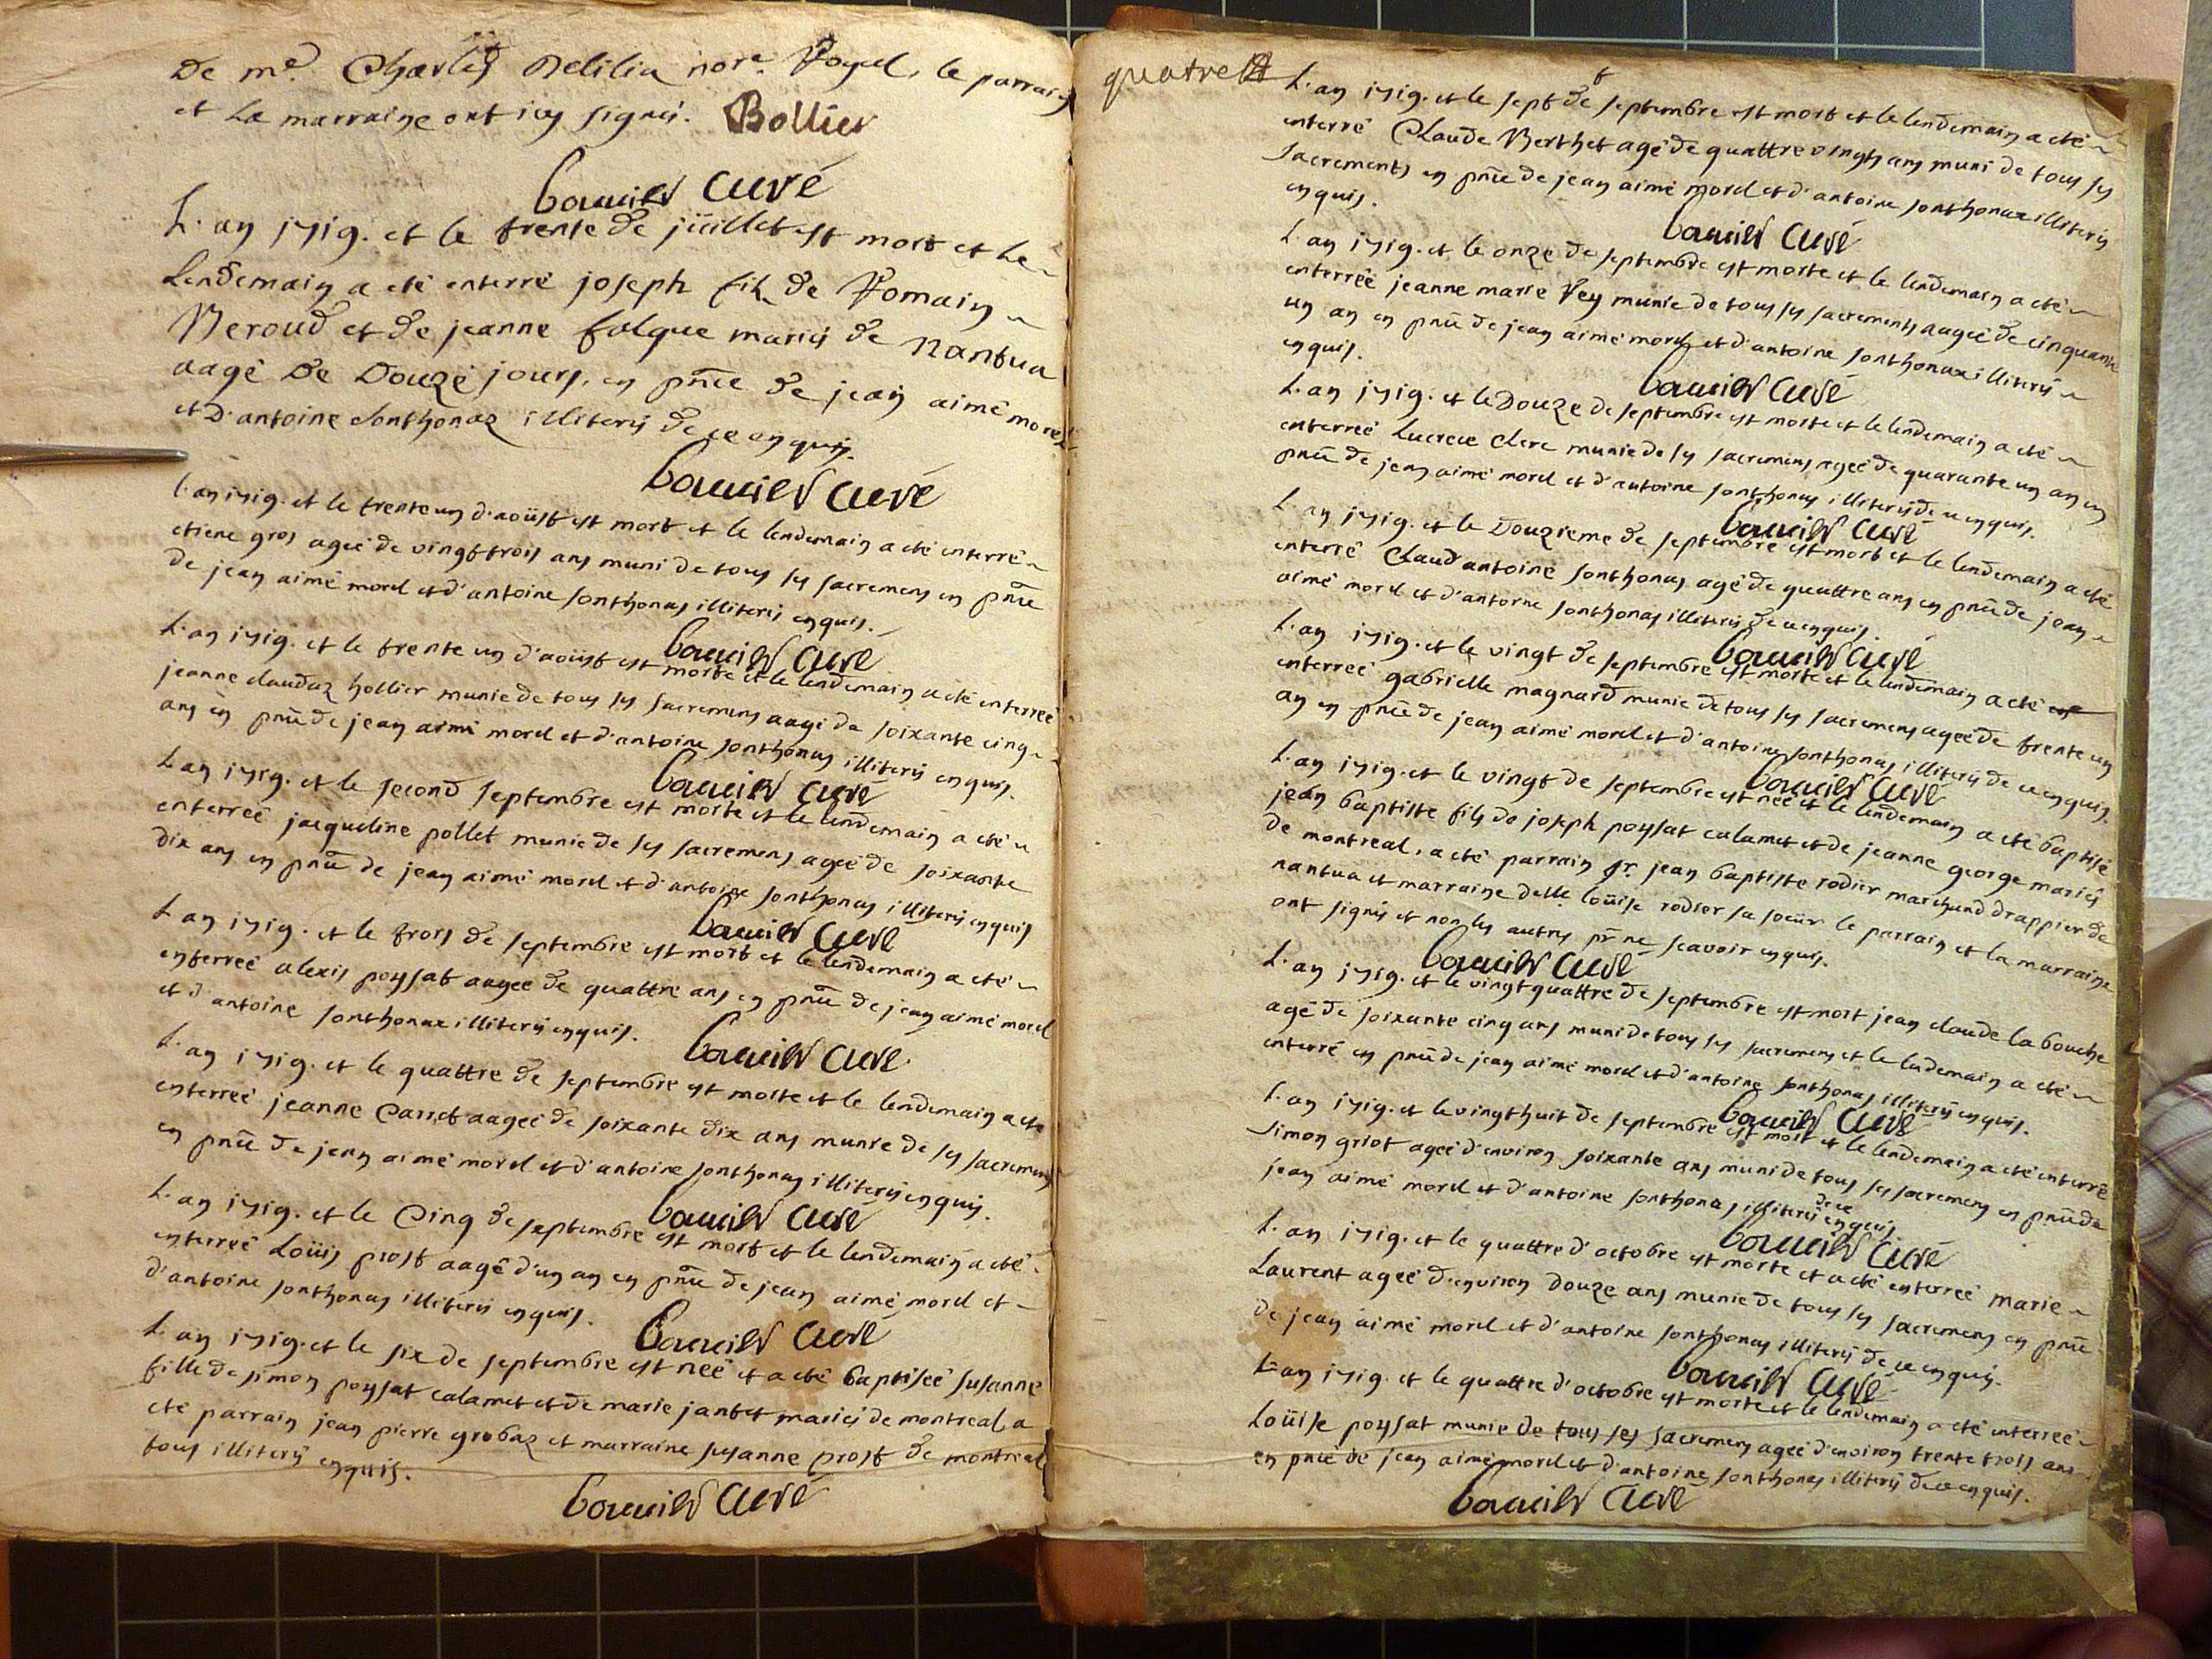 De me. Charles Delilia nore. Royal, le parrain
et La marraine ont icy signés. Bollier
Bouuier Curé
L'an 1719. et le trente de jüillet est mort et Le
Lendemain a eté enterré joseph fils de Romain
Neroud et de jeanne folque mariés de nantua
aagé De Douze jours, en pnce de jean aimé morel
et D'antoine Sonthonaz illiterés de ce enquis.
Bouuier Curé
L'an 1719. et le trente un d'aoüst est mort et le lendemain a eté enterré
etiene gros ageé de vingt trois ans muni de tous ses sacremens en pnce
de jean aimé morel et d'antoine sonthonas illiterés enquis.
Bouuier Curé
L'an 1719. et le trente un d'aoüst est morte et le lendemain a eté enterreé
jeanne claudaz hollier munie de tous ses sacremens aagé de soixante cinq
ans en pnce de jean aimé morel et d'antoine sonthonas illiterés enquis.
Bouuier Curé
L'an 1719. et le second septembre est morte et le lendemain a eté
enterreé jacqueline pollet munie de ses sacremens ageé de soixante
dix ans en pnce de jean aimé morel et d'antoine sonthonas illiterés enquis
Bouuier Curé
L'an 1719. et le trois de septembre est mort et le lendemain a eté
enterreé alexis poysat aageé de quattre ans en pnce de jean aimé morel
et d'antoine sonthonax illiterés enquis.
Bouuier Curé.
L'an 1719. et le quattre de septembre est morte et le lendemain a eté
enterreé jeanne Carret aageé de soixante dix ans munie de ses sacremens
en pnce de jean aimé morel et d'antoine sonthonas illiterés enquis.
Bouuier Curé
L'an 1719. et le Cinq de septembre est mort et le lendemain a eté
enterreé Loüis prost aagé d'un an en pnce de jean aimé morel et
d'antoine sonthonas illiterés enquis.
Bouuier Curé
L'an 1719. et le six de septembre est neé et a eté baptiseé susanne
fille de simon poysat calamet et de marie jantet mariés de montreal, a
eté parrain jean pierre grobaz et marraine susanne prost de montreal
tous illiterés enquis.
Bouuier Curé
quatre 4
L'an 1719. et le sept de septembre est mort et le lendemain a eté
enterré Claude Berthet agé de quattre vingts ans muni de tous ses
sacrements en pnce de jean aimé morel et d'antoine sonthonax illiterés
enquis.
Bouuier Curé
L'an 1719. et le onze de septembre est morte et le lendemain a eté
enterreé jeanne marie Rey munie de tous ses sacrements aageé de cinquante
un an en pnce de jean aimé morel et d'antoine sonthonax illiterés
enquis.
Bouuier Curé
L'an 1719. et le Douze de septembre est morte et le lendemain a eté
enterreé Lucrece Clerc munie de ses sacremens ageé de quarante un an en
pnce de jean aimé morel et d'antoine sonthonas illiterés de ce enquis.
Bouuier Curé
L'an 1719. et le Douzieme de septembre est mort et le lendemain a eté
enterré Claud'antoine sonthonas agé de quattre ans en pnce de jean
aimé morel et d'antoine sonthonas illiterés de ce enquis.
Bouuier Curé
L'an 1719. et le vingt de septembre est morte et le lendemain a eté
enterreé gabrielle magnard munie de tous ses sacremens ageé de trente un
an en pnce de jean aimé morel et d'antoine sonthonas illiterés de ce enquis.
Bouuier Curé
L'an 1719. et le vingt de septembre est neé et le lendemain a eté baptisé
jean baptiste fils de joseph poysat calamet et de jeanne george mariés
de montreal, a eté parrain sr. jean baptiste rodier marchand drappier de
nantua et marraine delle. loüise rodier sa soeür le parrain et la marraine
ont signés et non les autres pr. ne scavoir enquis.
Bouuier Curé
L'an 1719. et le vingt quattre de septembre est mort jean claude la bouche
agé de soixante cinq ans muni de tous ses sacremens et le lendemain a eté
enterré en pnce de jean aimé morel et d'antoine sonthonas illiterés enquis.
Bouuier Curé
L'an 1719. et le vingt huit de septembre est mort et le lendemain a eté enterré
simon griot ageé d'environ soixante ans muni de tous ses sacremens en pnce de
jean aimé morel et d'antoine sonthonas illiterés de ce enquis.
Bouuier Curé
L'an 1719. et le quattre d'octobre est morte et a eté enterreé marie
Laurent ageé d'environ Douze ans munie de tous ses sacremens en pnce
de jean aimé morel et d'antoine sonthonas illiterés de ce enquis.
Bouuier Curé
L'an 1719. et le quattre d'octobre est morte et le lendemain a eté enterreé
Loüise poysat munie de tous ses sacremens ageé d'environ trente trois ans
en pnce de jean aimé morel et d'antoine sonthonas illiterés de ce enquis.
Bouuier Curé